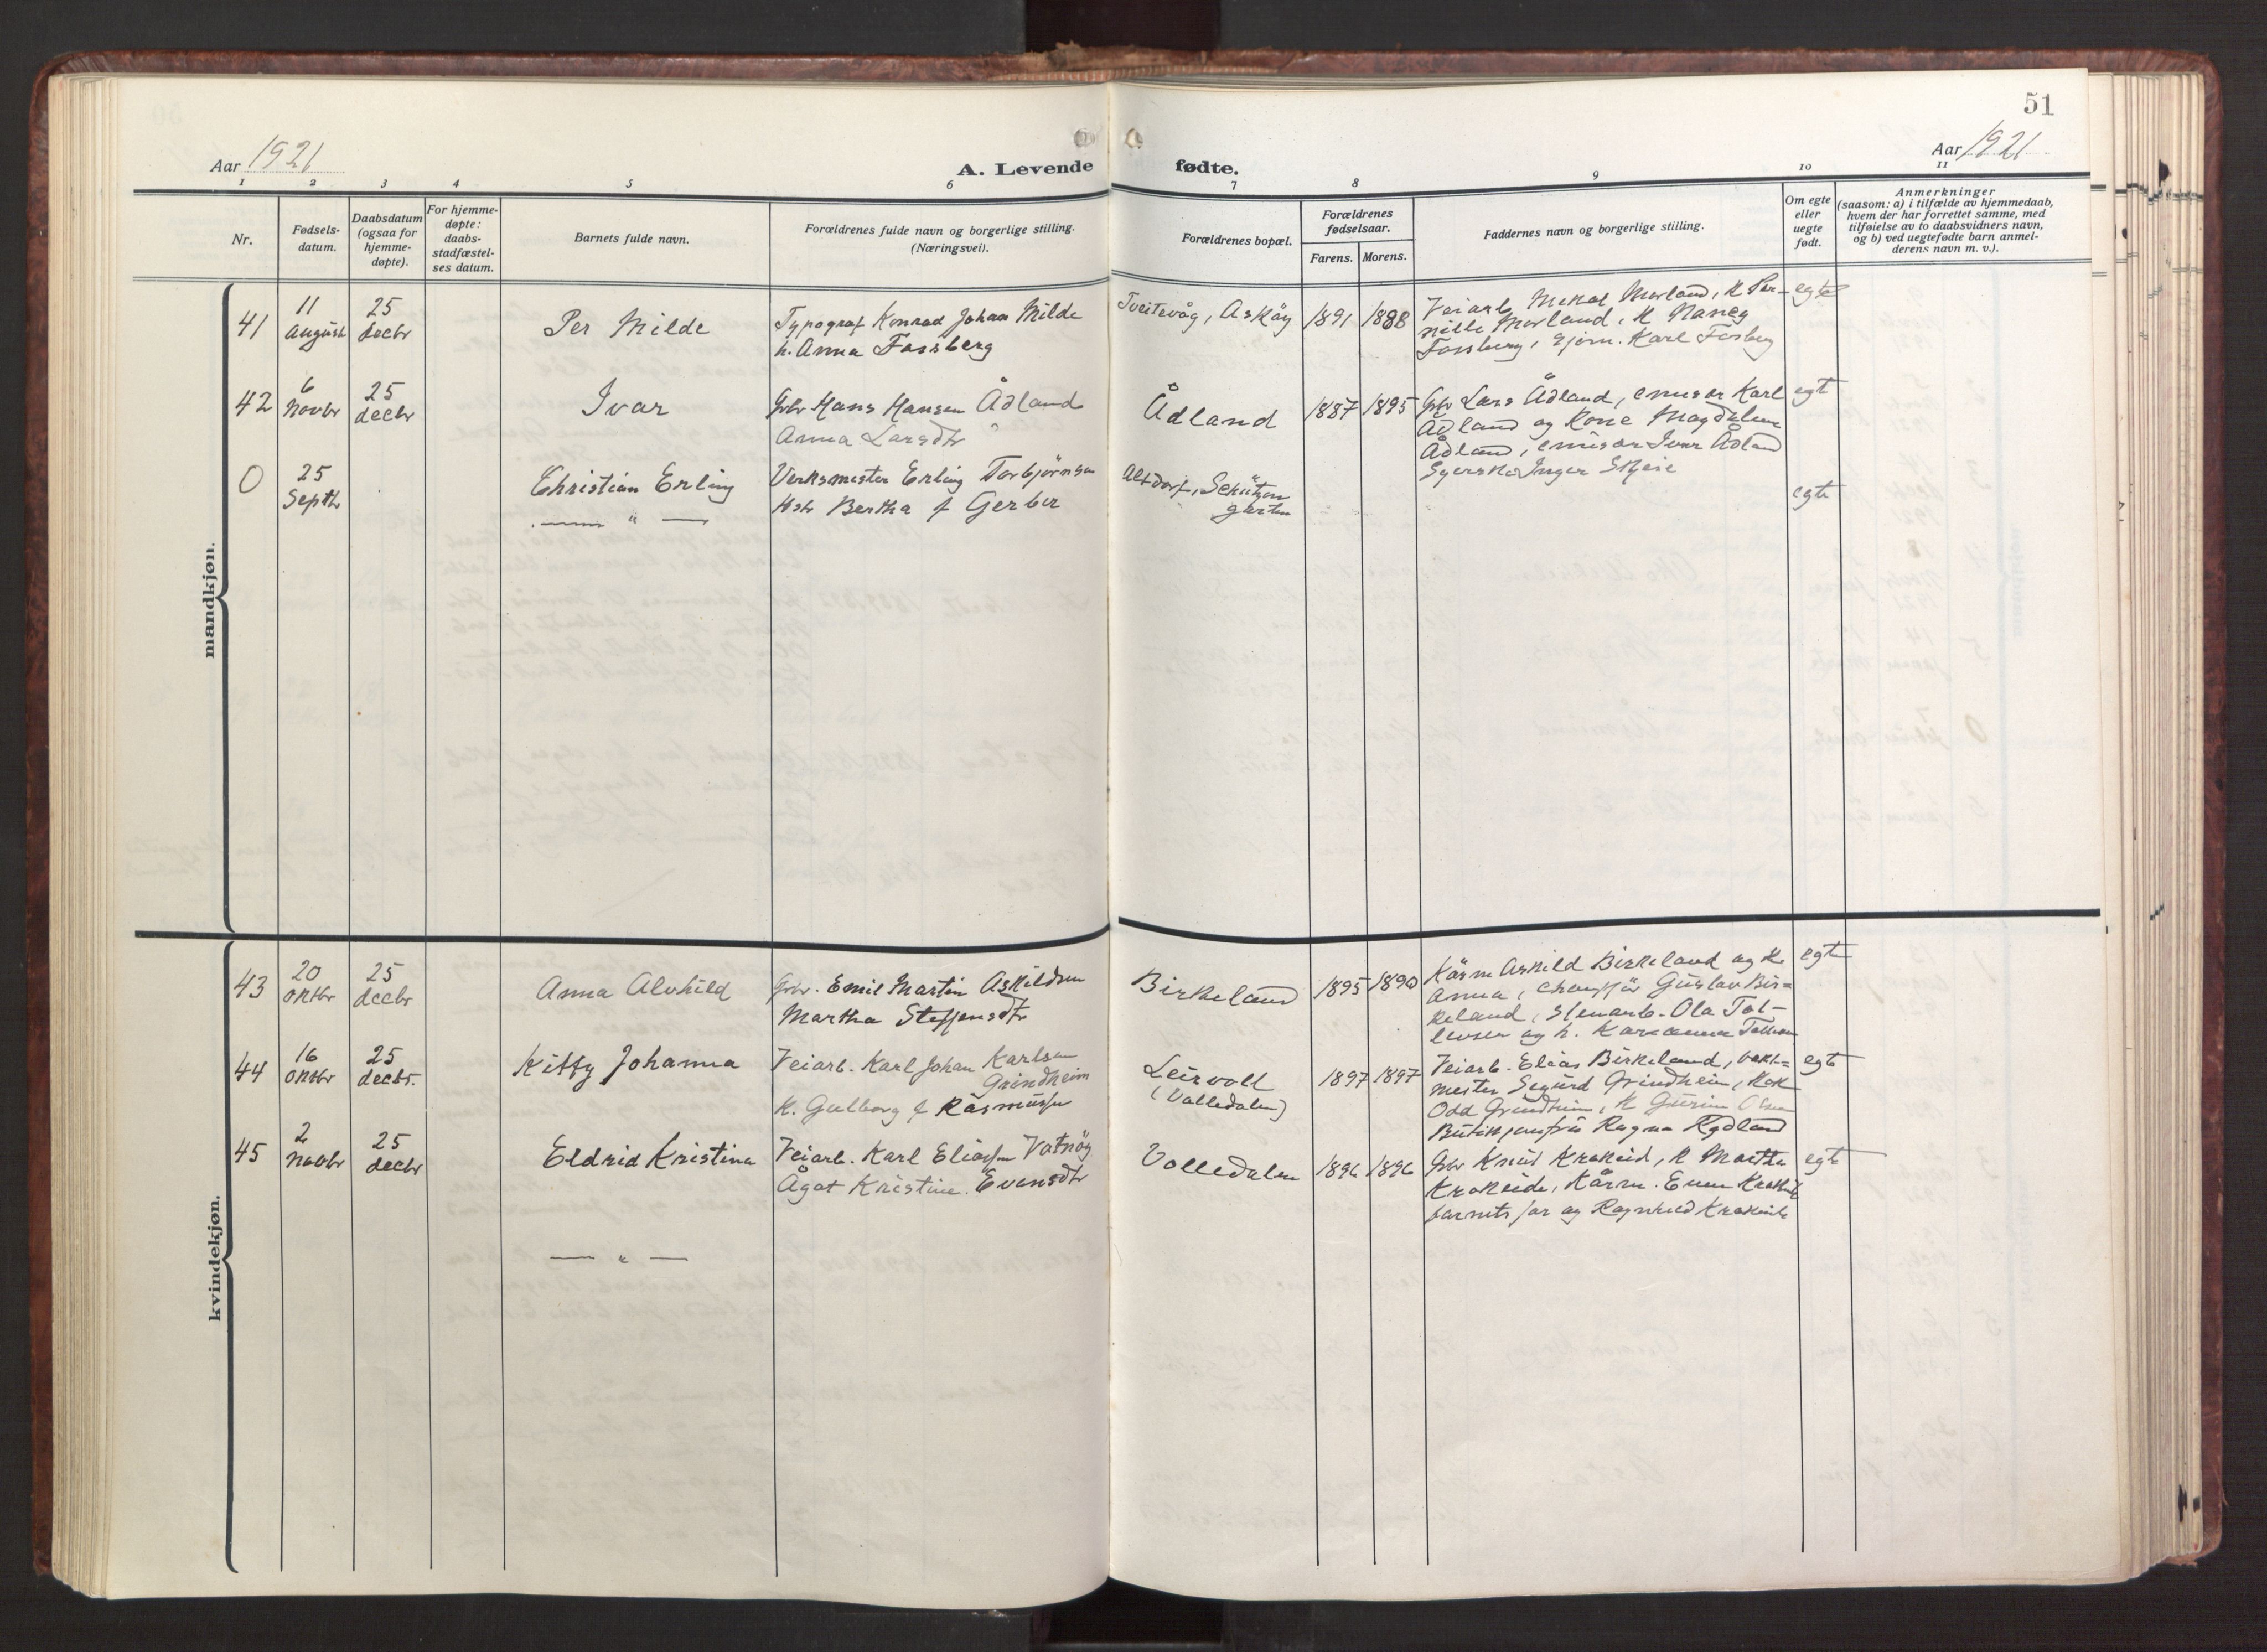 51
Aar 1921
A. Levende
fødte.
Aar 1921
1 2 3 4 5 6 7 8 9 10 11
Nr.
Fødsels-
datum.
Daabsdatum
(ogsaa for
hjemme-
døpte).
For hjemme-
døpte:
daabs-
stadfæstel-
ses datum.
Barnets fulde navn.
Forældrenes fulde navn og borgerlige stilling.
(Næringsvei).
Forældrenes bopæl.
Forældrenes
fødselsaar.
Farens. Morens.
Faddernes navn og borgerlige stilling.
Om egte
eller
uegte
født.
Anmerkninger
(saasom: a) i tilfælde av hjemmedaab,
hvem der har forrettet samme, med
tilføielse av to daabsvidners navn,
og b) ved uegtefødte barn anmel-
derens navn m. v.).
mandkjøn.
41
11
August
25
decbr
Per Milde
Typograf Konrad Johan Milde
h. Anna Fossberg
Tveitevåg, Askøy
1891 1888
Veiarb. Mikal Morland, K Per-
nille Morland, K Nancy
Fossberg, Karl Fosberg
egte
42
6
Novbr
25
decbr
Ivar
Gbr Hans Hansen Ådland
Anna Larsdtr
Ådland
1887 1895
Gbr Lars Ådland, emisær Karl
Ådland og Kone Magdalene
Ådland, emisær Ivar Ådland
Syerske Inger Skeie
egte
0
25
Septbr
Christian Erling
— " —
Verksmester Erling Torbjörnsen
Hstr Bertha f Gerber
Altdorf, Schützen
garten
egte
kvindekjøn.
43
20
Oktbr
25
decbr
Anna Alvhild
Gbr. Emil Martin Askildsen
Martha Steffensdtr
Birkeland
1895 1890
Kårm Askild Birkeland og K.
Anna, chaufför Gustav Bir=
keland, Stenarb. Ola Tol-
levsen og h.
egte
44
16
Oktbr
25
decbr.
Kitty Johanna
Veiarb. Karl Johan Karlsen
Grindheim
K. Gulborg f Rasmussen
Leirvoll
(Volledalen)
1897 1897
Veiarb. Elias Birkeland,
mester Sigurd Grindheim,
Odd Grindheim, K Olsen
Butikjomfru Ragna Rydland
egte
45
2
Novbr
25
decbr
Eldrid Kristina
Veiarb. Karl Eliassen Vatnöy
Ågot Kristine Evensdtr
Volledalen
1896 1896
Gbr Knut Krokeid, K Martha
Krokeide, Kårm. Even Krokeide
barnets far og Ragnhild Krokeide
egte
— " —